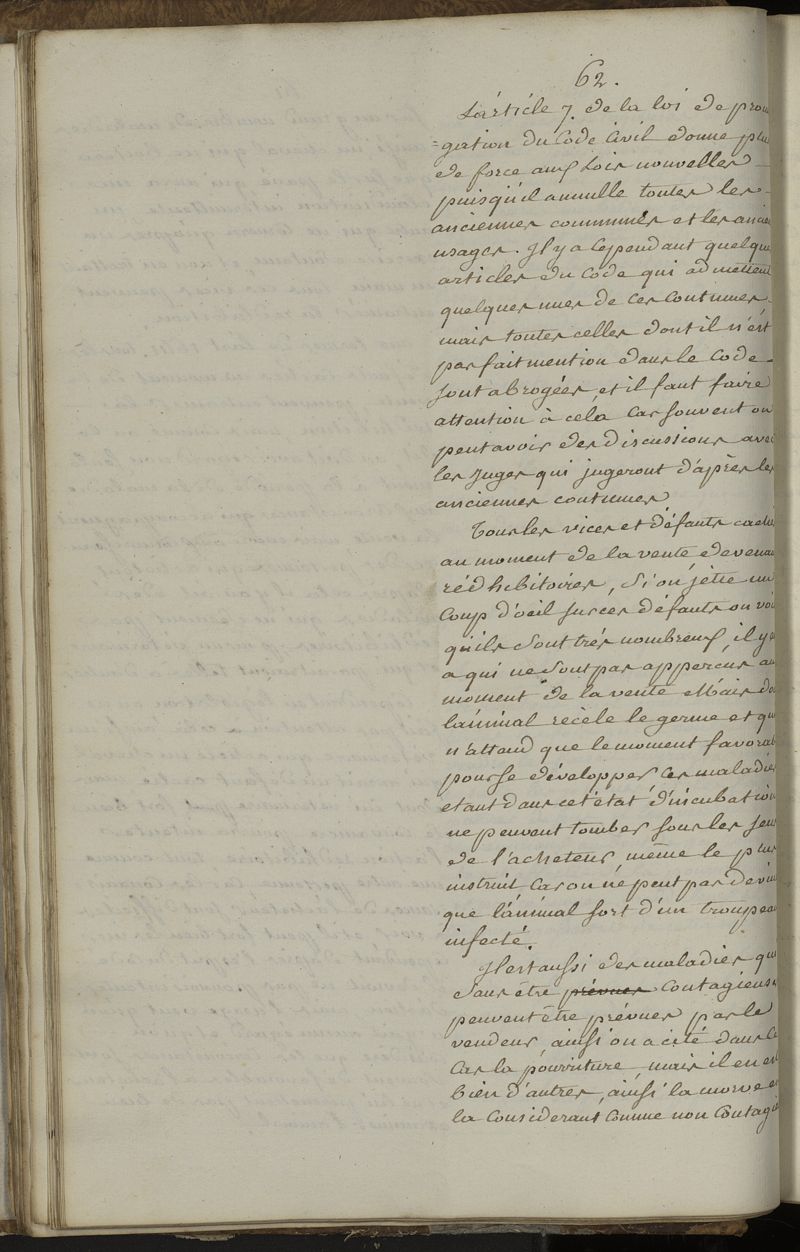 62.
L'article 7. de la loi de prou
=gation du Code Civil donne plu
de force aux Lois nouvelles
puisqu'il annulle toutes les
anciennes communes et les ancien
usages. Il y a Cependant quelque
articles du Code qui admettent
quelques unes de ces Coutumes.
mais toutes celles dont il n'est
pas fait mention dans le Code
sont abrogées, et il faut faire
attention à cela Car souvent on
peut avoir des Discussions avec
les Juges qui jugeront d'après les
anciennes coutumes
Tous les vices et défauts cachés
au moment de la vente devenan
rédhibitoires, Si on jète un
Coup d'oeil sur ces défauts on voi
qu'ils sont très nombreux, il y e
a qui ne sont pas apperçus au
moment de la vente Mais do
l'animal recèle le germe et qu
n'attend que le moment favorab
pour se développer Ces maladies
etant dans cet état d'incubation
ne peuvent tomber sous les sen
de l'acheteur même le plus
instruit Car on ne peut pas devin
que l'animal sort d'un troupeau
infecté.
Il est aussi des maladies qui
sans être prévues Contagieuses
peuvent être prévues par le
vendeur, ainsi on a cité dans le
Cas la pourriture mais il en es
bien d'autres, ainsi la morve en
la Considerant Comme non Contagi